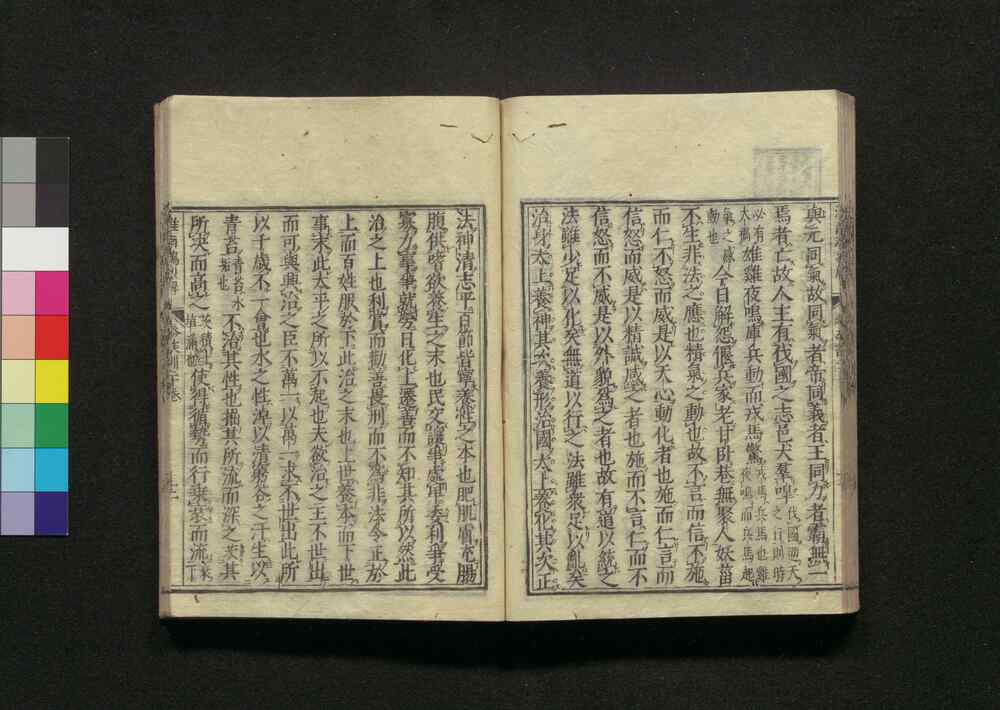 與元同氣故同氣者帝同義者王同力者霸無一
焉者亡故人主有伐國之志邑犬羣嘷
必有雄雞夜鳴庫兵動而戎馬驚
動也 今日解怨偃兵家老甘臥巷無聚人妖菑
不生非法之應也精氣之動也故不言而信不施
而仁不怒而威是以天心動化者也施而仁言而
信怒而威是以精誠感之者也施而不仁言而不
信怒而不威是以外貌爲之者也故有道以統之
法雖少足以化矣無道以行之法雖衆足以亂矣
治身太上養神其次養形治國太上養化其次正
法神清志平百節皆寧養性之本也肥肌膚充腸
腹供嗜欲養生之末也民交讓爭處卑委利爭受
寡力事爭就勞日化上遷善而不知其所以然此
治之上也利賞而勸善畏刑而不爲非法令正於
上而百姓服於下此治之末也上世養本而下世
事末此太平之所以不起也夫欲治之主不世出
而可與興治之臣不萬一以萬一求不世出此所
以千歲不一會也水之性淖以清窮谷之汙生以
青苔 青苔水垢也 不治其性也掘其所流而深之茨其
所決而高之 使得循勢而行乘衰而流